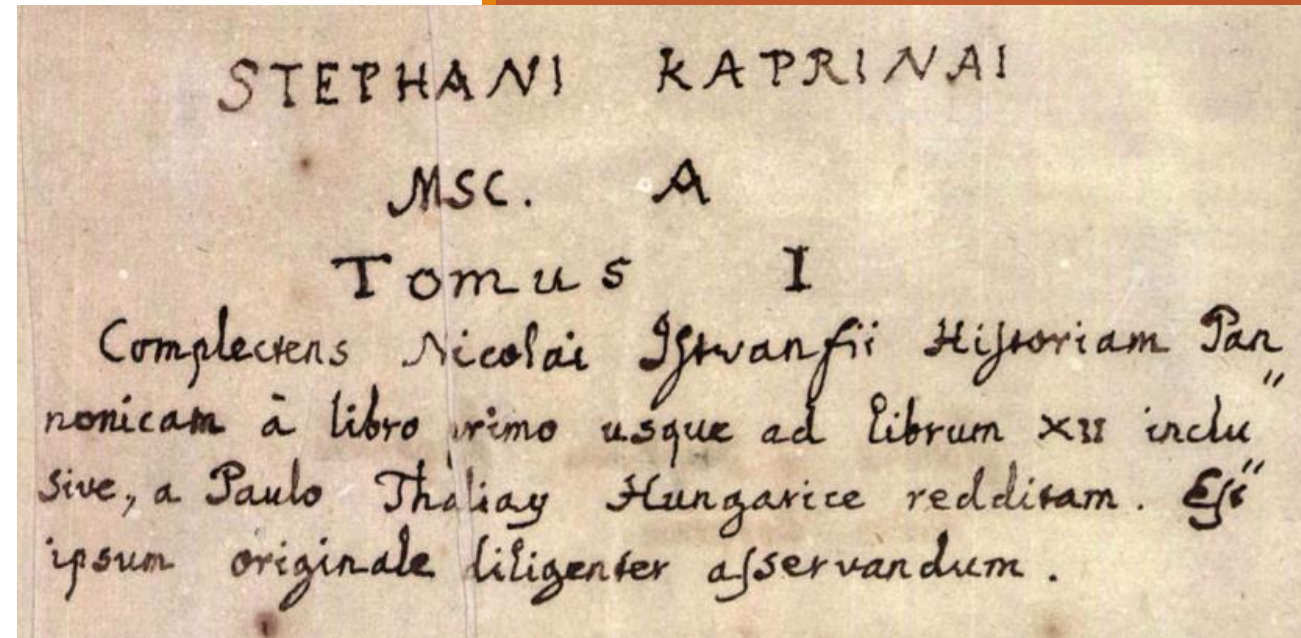 STEPHANI KAPRINAI
MSC. A
Tomus I
Complectens Nicolai Istvanfii Historiam Pan
nonicam à libro primo usque ad librum XII inclu"
sive, a Paulo Tháliay Hungarice redditam. Est"
ipsum originale diligenter asservandum.